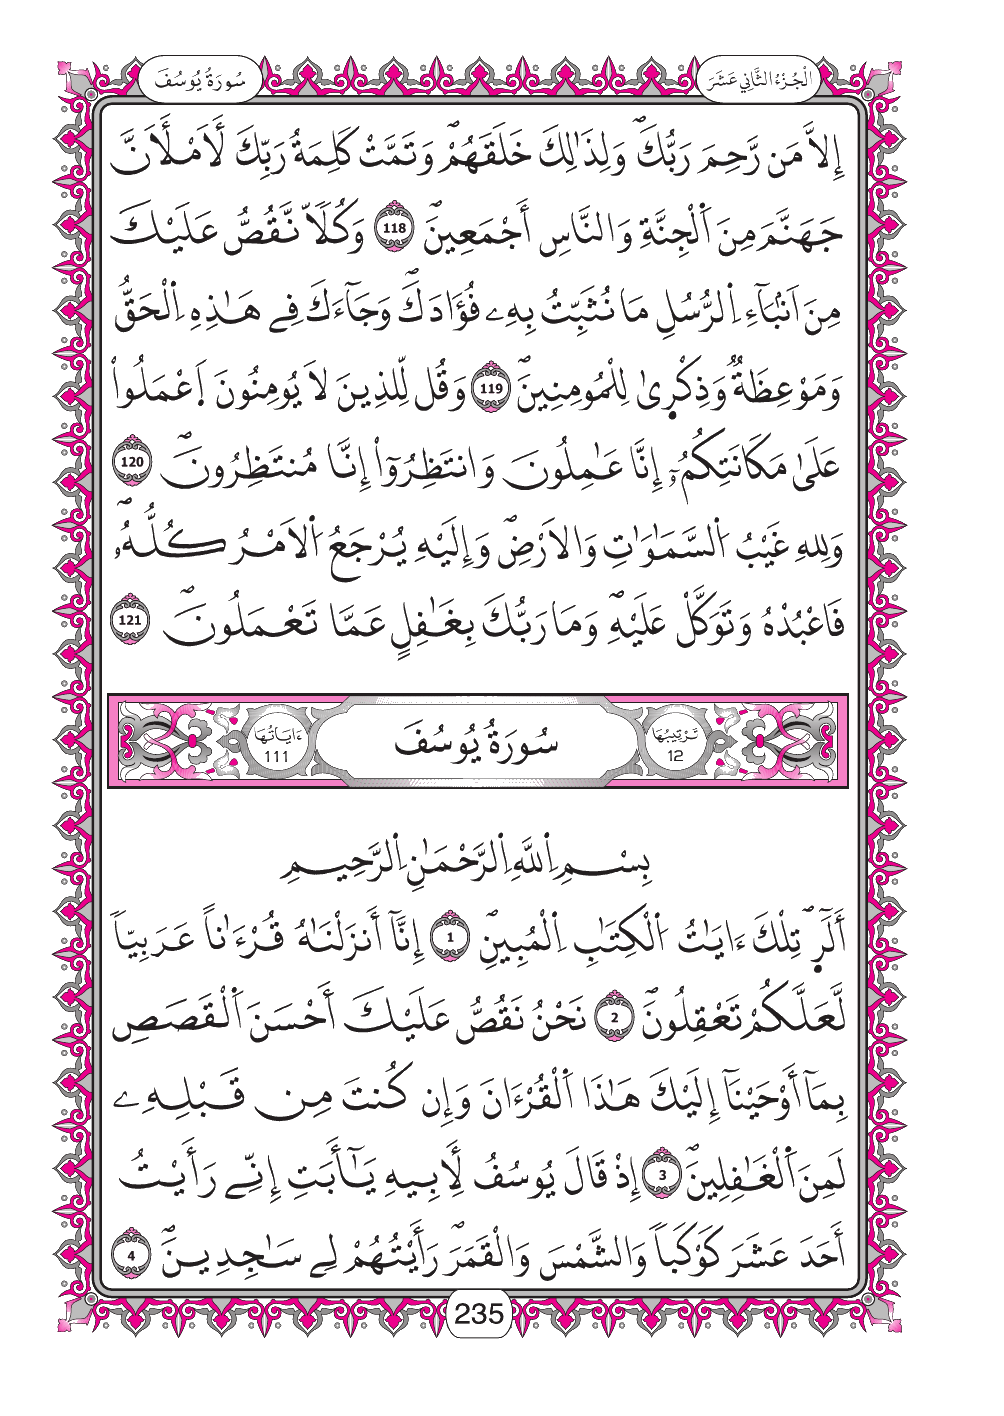 الْجُزْءُ الثَّانِي عَشَرَ
سُورَةُ يُوسُفَ
إِلاَّ مَن رَّحِمَ رَبُّكَۖ وَلِذَٰلِكَ خَلَقَهُمْۖ وَتَمَّتْ كَلِمَةُ رَبِّكَ لَأَمْلَأَنَّ
جَهَنَّمَ مِنَ اَ۬لْجِنَّةِ وَالنَّاسِ أَجْمَعِينَۖ 118 وَكُلّاَ نَّقُصُّ عَلَيْكَ
مِنَ اَنۢبَآءِ اِ۬لرُّسُلِ مَا نُثَبِّتُ بِهِۦ فُؤَادَكَۖ وَجَآءَكَ فِے هَٰذِهِ اِ۬لْحَقُّ
وَمَوْعِظَةٞ وَذِكْر۪يٰ لِلْمُومِنِينَۖ 119 وَقُل لِّلذِينَ لاَ يُومِنُونَ اَ۪عْمَلُواْ
عَلَيٰ مَكَانَتِكُمُۥٓ إِنَّا عَٰمِلُونَ وَانتَظِرُوٓاْ إِنَّا مُنتَظِرُونَۖ 120
وَلِلهِ غَيْبُ اُ۬لسَّمَٰوَٰتِ وَالَارْضِۖ وَإِلَيْهِ يُرْجَعُ اُ۬لَامْرُ كُلُّهُۥۖ
فَاعْبُدْهُ وَتَوَكَّلْ عَلَيْهِۖ وَمَا رَبُّكَ بِغَٰفِلٍ عَمَّا تَعْمَلُونَۖ 121
تَرْتِيبُهَا 12
سُورَةُ يُوسُفَ
ءَايَاتُهَا 111
بِسْمِ اِ۬للَّهِ اِ۬لرَّحْمَٰنِ اِ۬لرَّحِيمِ
أَلَٓر۪ۖ تِلْكَ ءَايَٰتُ اُ۬لْكِتَٰبِ اِ۬لْمُبِينِۖ 1 إِنَّآ أَنزَلْنَٰهُ قُرْءَٰناً عَرَبِيّاٗ
لَّعَلَّكُمْ تَعْقِلُونَۖ 2 نَحْنُ نَقُصُّ عَلَيْكَ أَحْسَنَ اَ۬لْقَصَصِ
بِمَآ أَوْحَيْنَآ إِلَيْكَ هَٰذَا اَ۬لْقُرْءَانَ وَإِن كُنتَ مِن قَبْلِهِۦ
لَمِنَ اَ۬لْغَٰفِلِينَۖ 3 إِذْ قَالَ يُوسُفُ لِأَبِيهِ يَٰٓأَبَتِ إِنِّے رَأَيْتُ
أَحَدَ عَشَرَ كَوْكَباٗ وَالشَّمْسَ وَالْقَمَرَۖ رَأَيْتُهُمْ لِے سَٰجِدِينَۖ 4
235